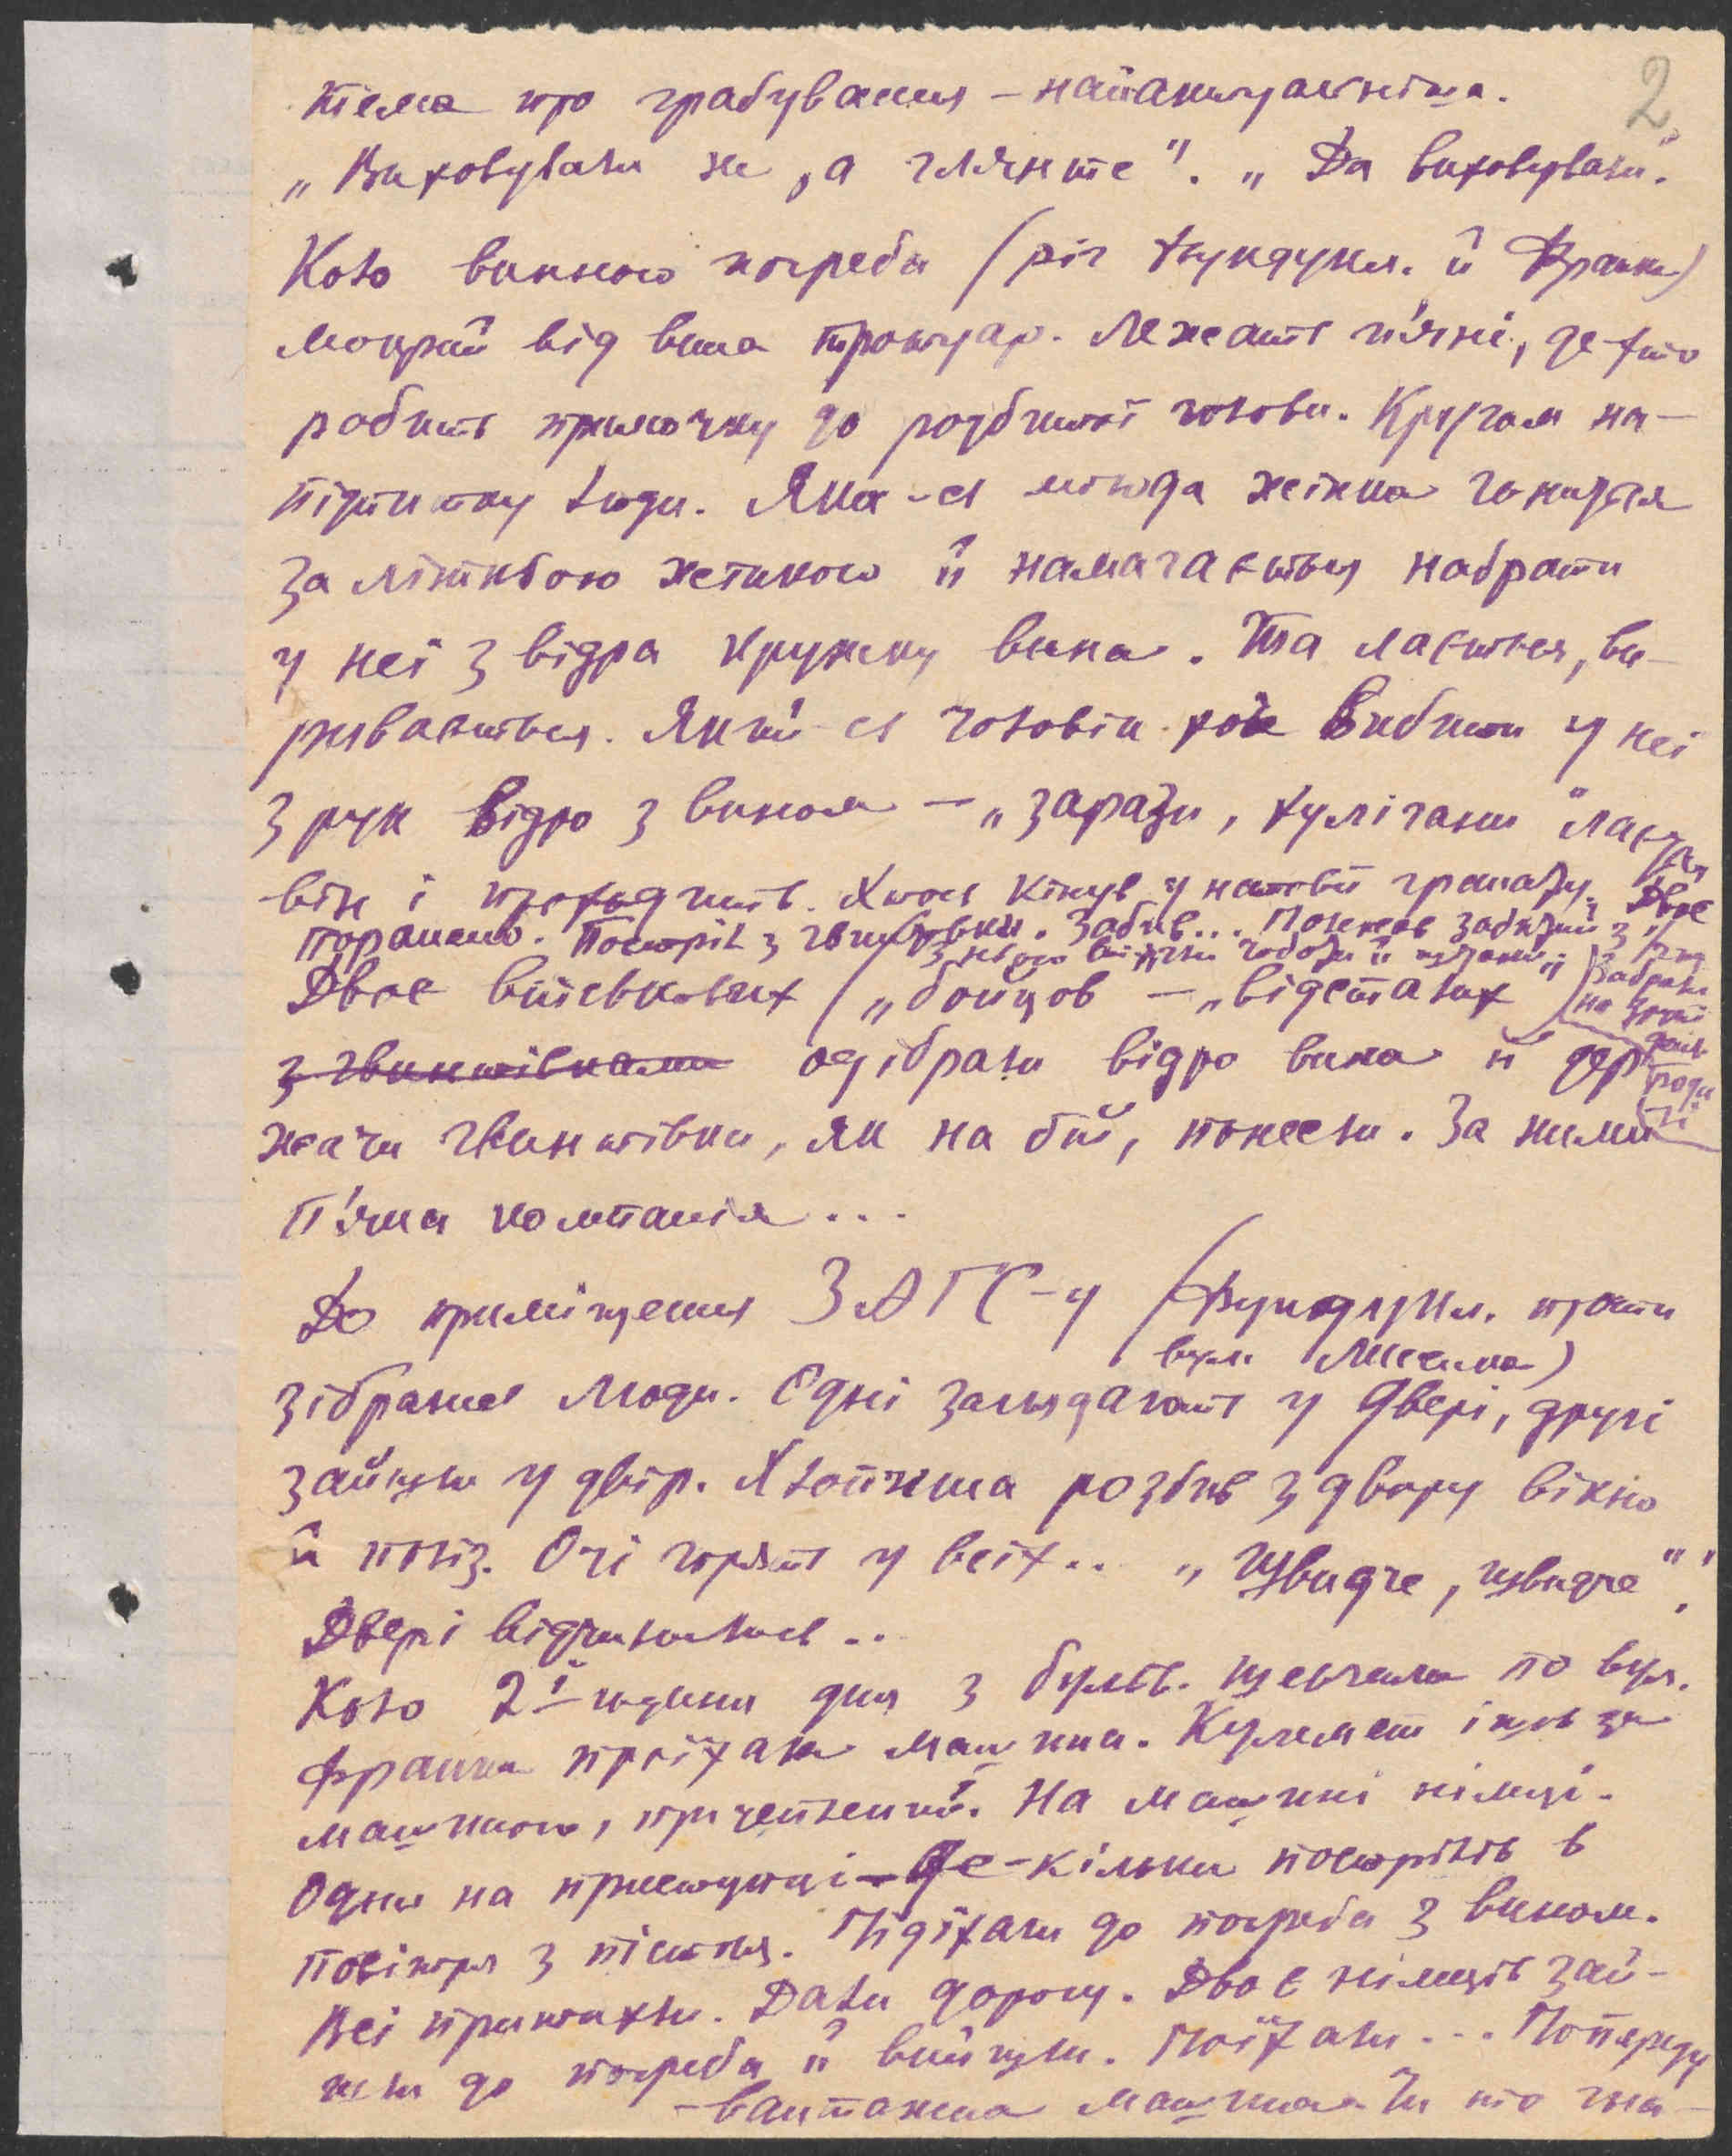 2
тема про грабування – найактуальніша.
„Виховували не, а гляньте“. „Да виховували“.
Коло винного погреба (ріг Фундукл. й Франка)
мокрий від вина тротуар. Лежать п'яні, де-хто
робить примочку до розбитої голови. Кругом на-
підпитку люди. Яка-сь молода жінка гониться
за літньою жінкою й намагається набрати
у неї з відра кружку вина. Та лається, ви-
ривається. Який-сь чоловік вибити у неї
з рук відро з вином – „зарази, хулігани“ лається
він і проходить. Хтось кінув у натовп гранату. Двоє
поранено. Постріл з гвинтовки. Забив... Лежить забитий з
з нього чоботи й
Двоє військових („бойцов – „відсталих“)
забрали
на
з гвинтівками одібрали відро вина й дер-
жачи гвинтівки, як на бій, понесли. За ними
п'яна компанія...
До приміщення ЗАГС-у (Фундукл. проти
вул. Лисенка)
зібрались люди. Одні заглядають у двері, другі
зайшли у двір. Хлопчина розбив з двору вікно
й поліз. Очі горять у всіх.. „Швидче, швидче“!
Двері відчинились..
Коло 2ї години дня з бульв. Шевченка по вул.
Франка проїхала машина. Кулемет ішов за
машиною, причеплений. На машині німці.
Один на приступці – Де-кілька пострілів в
повітря з пістоля. Підїхали до погреба з вином.
Всі притихли. Дали дорогу. Двоє німців зай-
шли до погреба й вийшли. Поїхали... Попереду
– вантажна машина. Чи то гна-